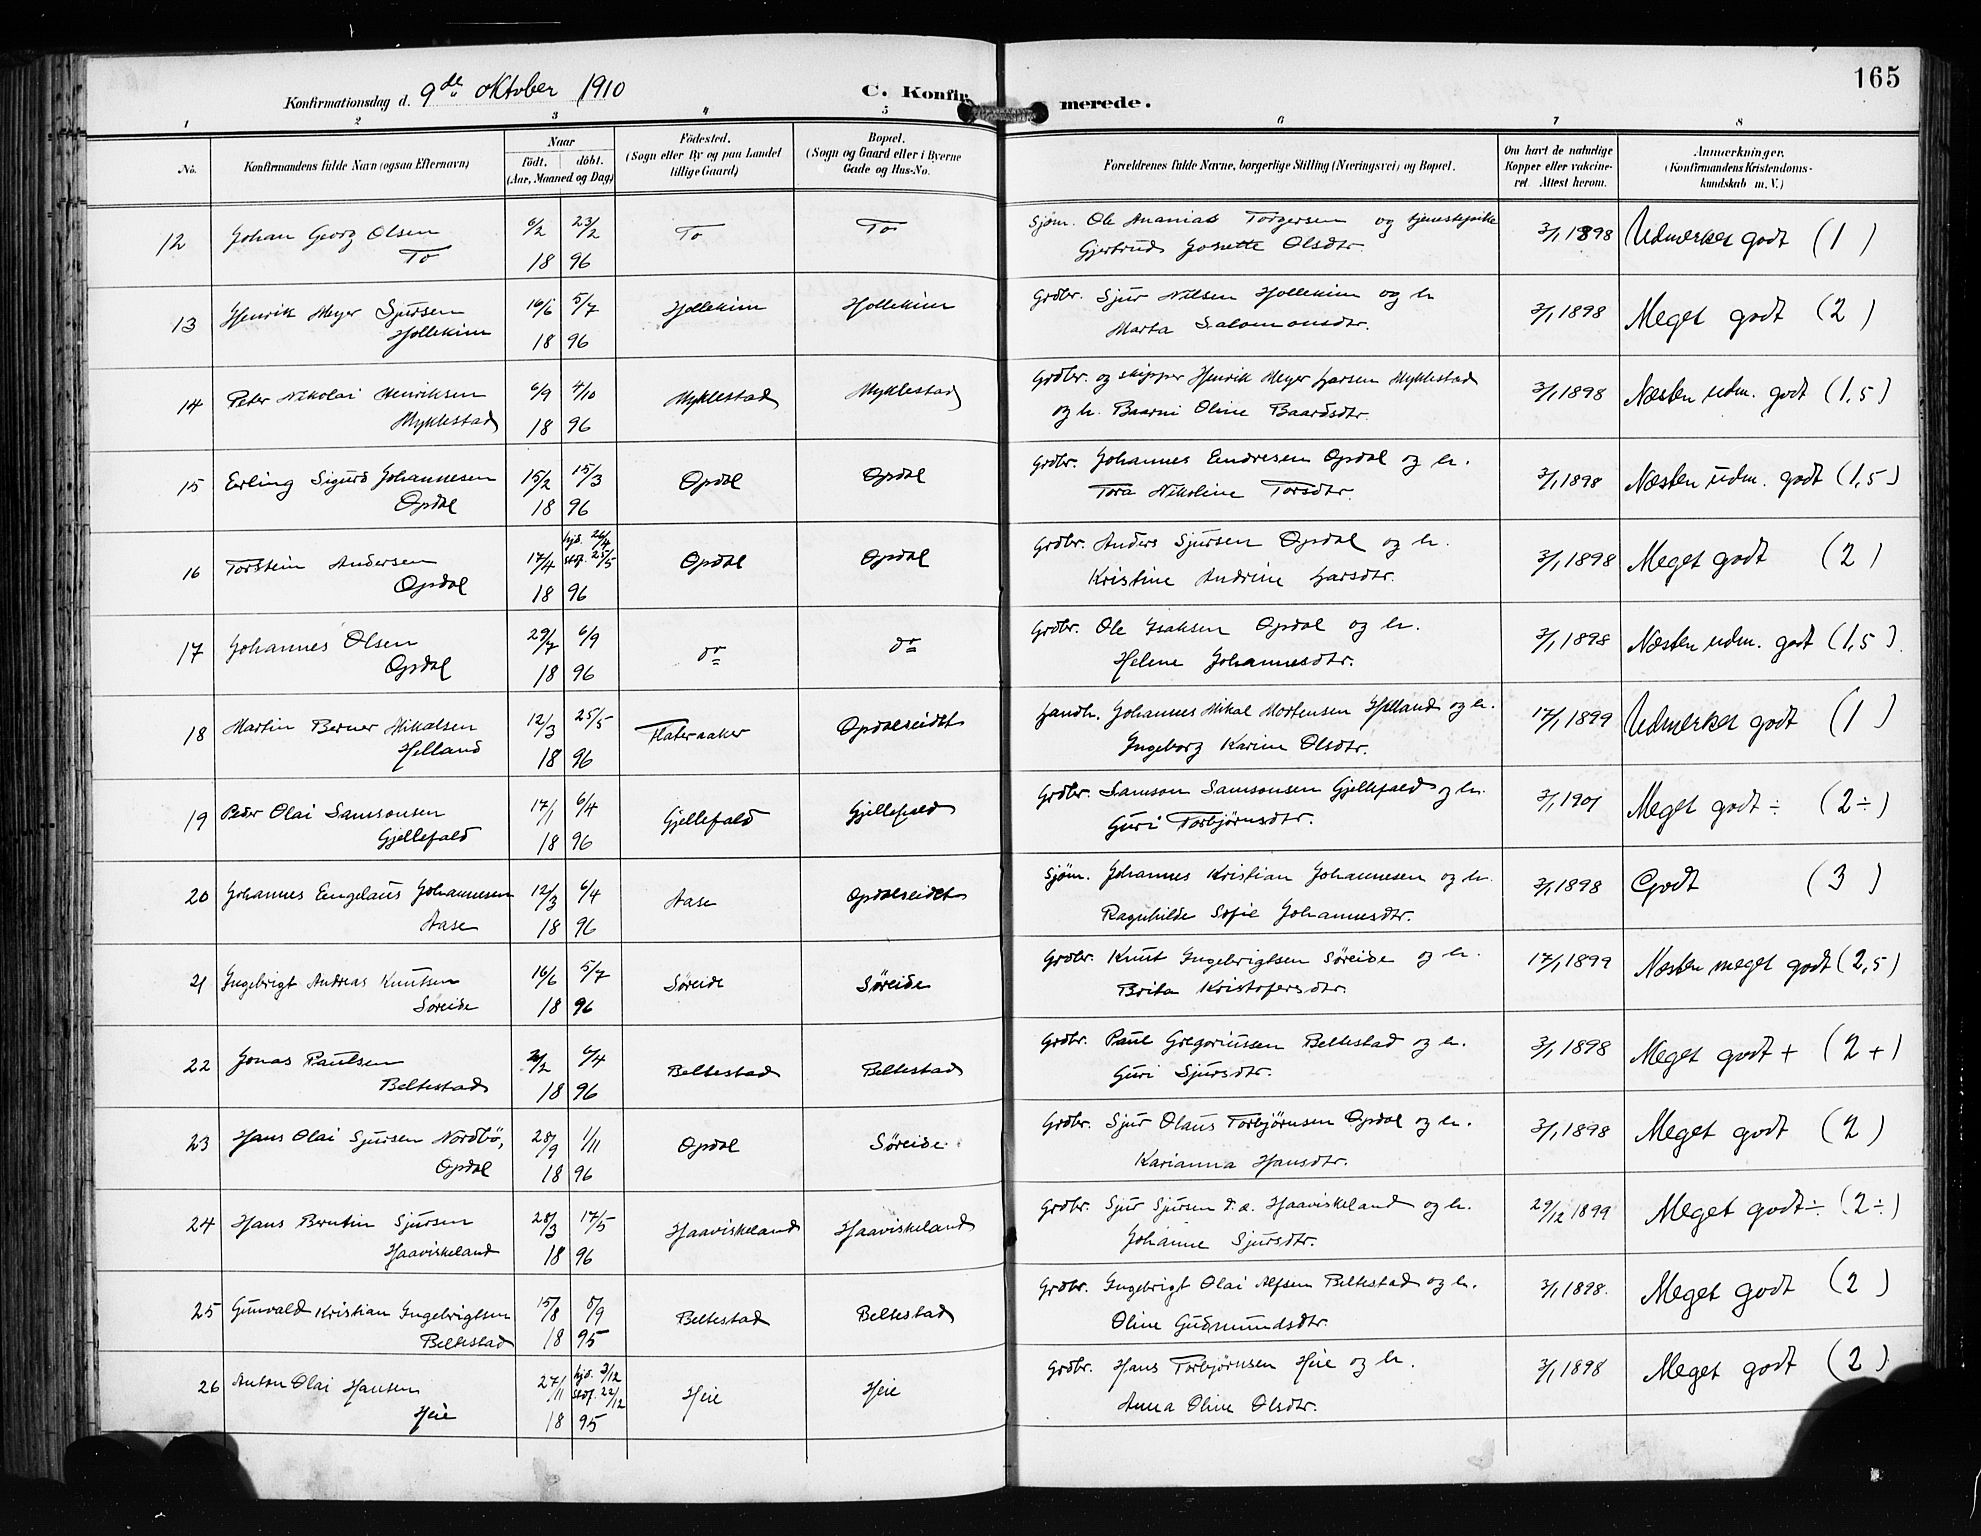 165
Konfirmationsdag d. 9de oktober 1910
C. Konfirmerede.
1 2 3 4 5 6 7 8
No.
Konfirmandens fulde Navn (ogsaa Efternavn)
Naar
født. døbt.
(Aar, Maaned og Dag)
Fødested.
(Sogn eller By og paa Landet
tillige Gaard)
Bopæl.
(Sogn og Gaard eller i Byerne
Gade og Hus-No.
Forældrenes fulde Navne, borgerlige Stilling (Næringsvei) og Bopæl.
Om havt de naturlige
Kopper eller vakcine-
ret Attest herom.
Anmærkninger.
(Konfirmandens Kristendoms-
kundskab m. V.)
12 Johan Georg Olsen 6/2 23/2 To To Sjøm. Ole Ananias Torgersen og tjenestepike 3/1 1898 Udmerket godt (1)
To 18 96 Gjertrud Josette Olsdtr.
13 Henrik Meyer Sjursen 16/6 5/7 Hollekim Hollekim Grdbr. Sjur Nilsen Hollekim og h. 3/1 1898 Meget godt (2)
Hollekim 18 96 Marta Salomonsdtr.
14 Peter Nikolai Henriksen 6/9 4/10 Myklestad Myklestad Grdbr. og skipper Henrik Meyer Larsen Myklestad 3/1 1898 Næsten udm. godt (1,5)
Myklestad 18 96 og h. Baarni Oline Baardsdtr.
15 Erling Sigurd Johannesen 15/2 15/3 Opdal Opdal Grdbr. Johannes Endresen Opdal og h. 3/1 1898 Næsten udm. godt (1,5)
Opdal 18 96 Tora Nikoline Torsdtr.
16 Torstein Andersen 17/4 hjd. 26/4 stdf. 25/5 Opdal Opdal Grdbr. Anders Sjursen Opdal og h. 3/1 1898 Meget godt (2)
Opdal 18 96 Kristine Andrine Larsdtr.
17 Johannes Olsen 29/7 6/9 do do Grdbr. Ole Isaksen Opdal og h. 3/1 1898 Næsten udm. godt (1,5)
Opdal 18 96 Helene Johannesdtr.
18 Martin Berner Mikalsen 12/3 25/5 Flateraaker Opdalseidet Landh. Johannes Mikal Mortensen Helland og h. 17/1 1899 Udmerket godt (1)
Helland 18 96 Ingeborg Karine Olsdtr.
19 Peder Olai Samsonsen 17/1 6/4 Gjellefald Gjellefald Grdbr. Samson Samsonsen Gjellefald og h. 3/1 1901 Meget godt ÷ (2÷)
Gjellefald 18 96 Guri Torbjørnsdtr.
20 Johannes Engelaus Johannesen 12/3 6/4 Aase Opdalseidet Sjøm. Johannes Kristian Johannesen og h. 3/1 1898 Godt (3)
Aase 18 96 Ragnhilde Sofie Johannesdtr.
21 Ingebrigt Andreas Knutsen 16/6 5/7 Søreide Søreide Grdbr. Knut Ingebrigtsen Søreide og h. 17/1 1899 Næsten meget godt (2,5)
Søreide 18 96 Brita Kristofersdtr.
22 Jonas Paulsen 6/4 Beltestad Beltestad Grdbr. Paul Gregoriussen Beltestad og h. 3/1 1898 Meget godt + (2+)
Beltestad 18 96 Guri Sjursdtr.
23 Hans Olai Sjursen Nordbø, 28/9 1/11 Opdal Søreide Grdbr. Sjur Olaus Torbjørnsen Opdal og h. 3/1 1898 Meget godt (2)
Opdal 18 96 Karianna Hansdtr.
24 Hans Berntin Sjursen 28/3 17/5 Haaviskeland Haaviskeland Grdbr. Sjur Sjursen d.a. Haaviskeland og h. 29/12 1899 Meget godt ÷ (2÷)
Haaviskeland 18 96 Johanne Sjursdtr.
25 Gunvald Kristian Ingebrigtsen 15/8 8/9 Beltestad Beltestad Grdbr. Ingebrigt Olai Alfsen Beltestad og h. 3/1 1898. Meget godt (2)
Beltestad 18 95 Oline Gudmundsdtr.
26 Anton Olai Hansen 27/11 hjd. 3/12 stdf. 22/12 Heie Heie Grdbr. Hans Torbjørnsen Heie og h. 3/1 1898 Meget godt (2)
Heie 18 95 Anna Oline Olsdtr.